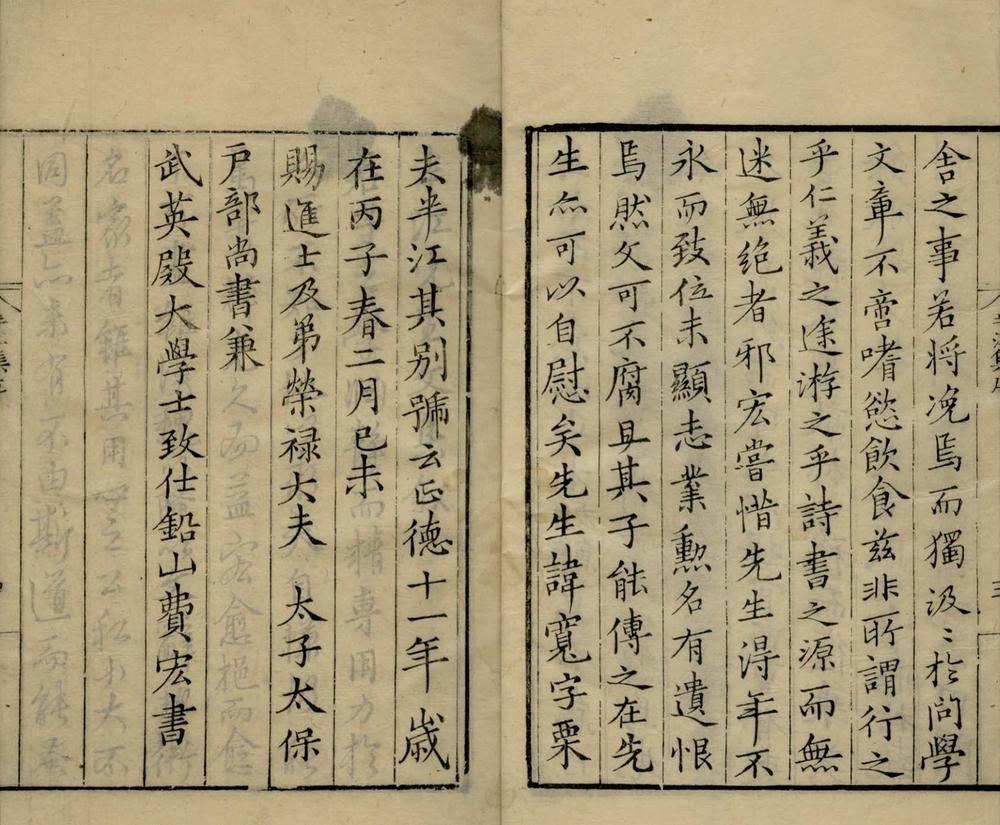 舍之事若将浼焉而獨汲〻於問學
文章不啻嗜慾飲食兹非所謂行之
乎仁義之途游之乎詩書之源而無
迷無絶者邪宏嘗惜先生淂年不
永而致位未顯志業勲名有遺恨
焉然文可不腐且其子能傳之在先
生亦可以自慰矣先生諱寬字栗
夫半江其别號云正德十一年歲
在丙子春二月己未
賜進士及弟榮禄大夫太子太保
户部尚書兼
武英殿大學士致仕鉛山費宏書